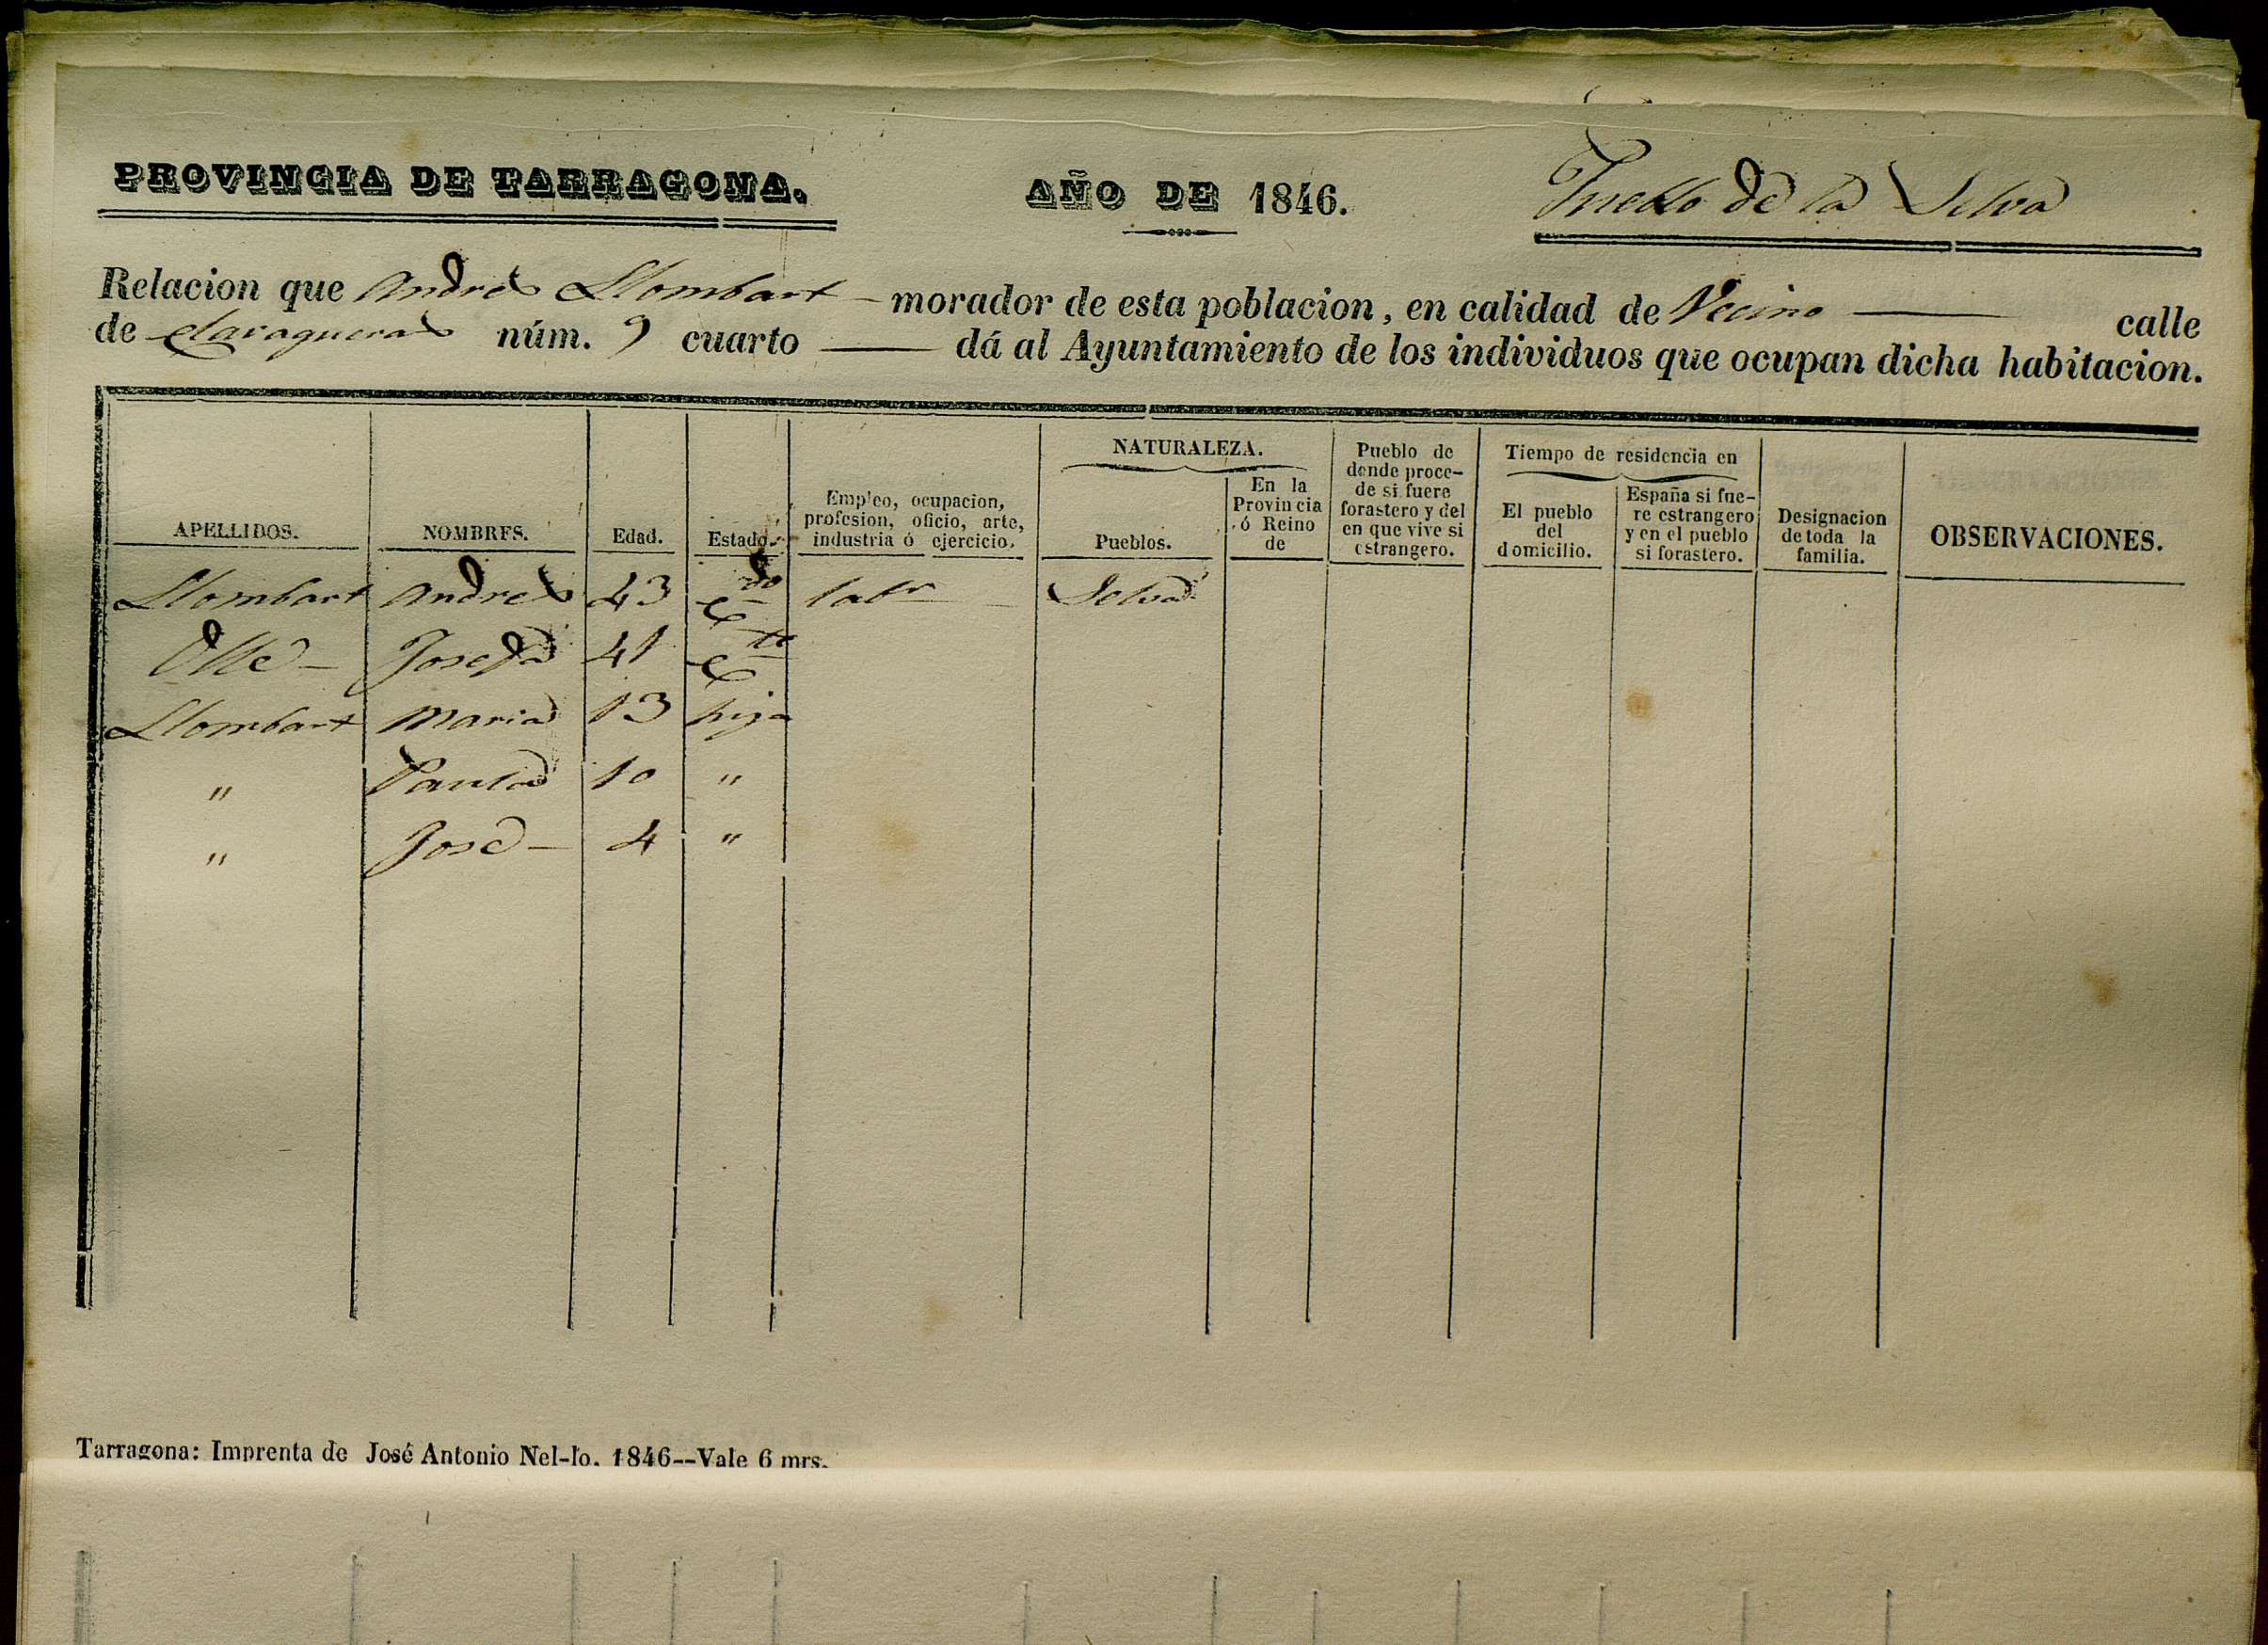 PROVINCIA DE TARRAGONA.
AÑO DE 1846.
Pueblo de la Selva
Relacion que Andres Llombart - morador de esta poblacion, en calidad de Vecino — calle
de claragueras núm. 9 cuarto — dá al Ayuntamiento de los individuos que ocupan dicha habitacion.
APELLIDOS.
NOMBRES.
Edad.
Estado.
Empleo, ocupacion,
profesion, oficio, arte,
industria ó ejercicio.
NATURALEZA.
Pueblos.
En la
Provincia
ó Reino
de
Pueblo de
donde proce-
de si fuere
forastero y del
en que vive si
estrangero.
Tiempo de residencia en
El pueblo
del
domicilio.
España si fue-
re estrangero
y en el pueblo
si forastero.
Designacion
de toda la
familia.
OBSERVACIONES.
Llombart Andres 43 Cdo labr Selva
Olle - Josefa 41 Cta
Llombart Maria 13 hija
" Paula 10 "
" José - 4 "
Tarragona: Imprenta de José Antonio Nel-lo. 1846--Vale 6 mrs.